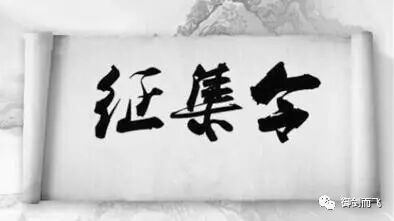 征集令
御剑而飞